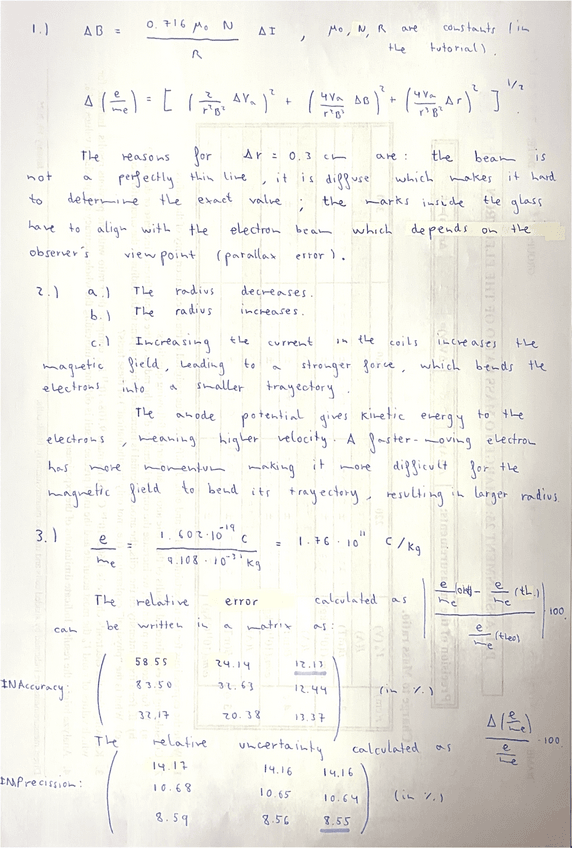 1.) ΔB = 0.716 μ₀ N / R ΔI , μ₀, N, R are constants (in
the tutorial).
Δ(e/me) = [ (2/r²B² ΔVa)² + (4Va/r²B³ ΔB)² + (4Va/r³B² Δr)² ]^1/2
The reasons for Δr = 0.3 cm are: the beam is
not a perfectly thin line, it is diffuse which makes it hard
to determine the exact value; the marks inside the glass
have to align with the electron beam which depends on the
observer's viewpoint (parallax error).
2.) a.) The radius decreases.
b.) The radius increases.
c.) Increasing the current in the coils increases the
magnetic field, leading to a stronger force, which bends the
electrons into a smaller trajectory.
The anode potential gives kinetic energy to the
electrons, meaning higher velocity. A faster-moving electron
has more momentum making it more difficult for the
magnetic field to bend its trajectory, resulting in larger radius.
3.) e/me = 1.602·10⁻¹⁹ C / 9.108·10⁻³¹ kg = 1.76·10¹¹ C/kg
The relative error calculated as | e/me - e/me (th.) / e/me (theo) | ·100.
can be written in a matrix as:
58.55 24.14 12.13
INAccuracy: 83.50 32.63 12.44 (in %)
32.17 20.38 13.37
The relative uncertainty calculated as Δ(e/me) / e/me ·100
14.17 14.16 14.16
IMPrecission: 10.68 10.65 10.64 (in %)
8.59 8.56 8.55